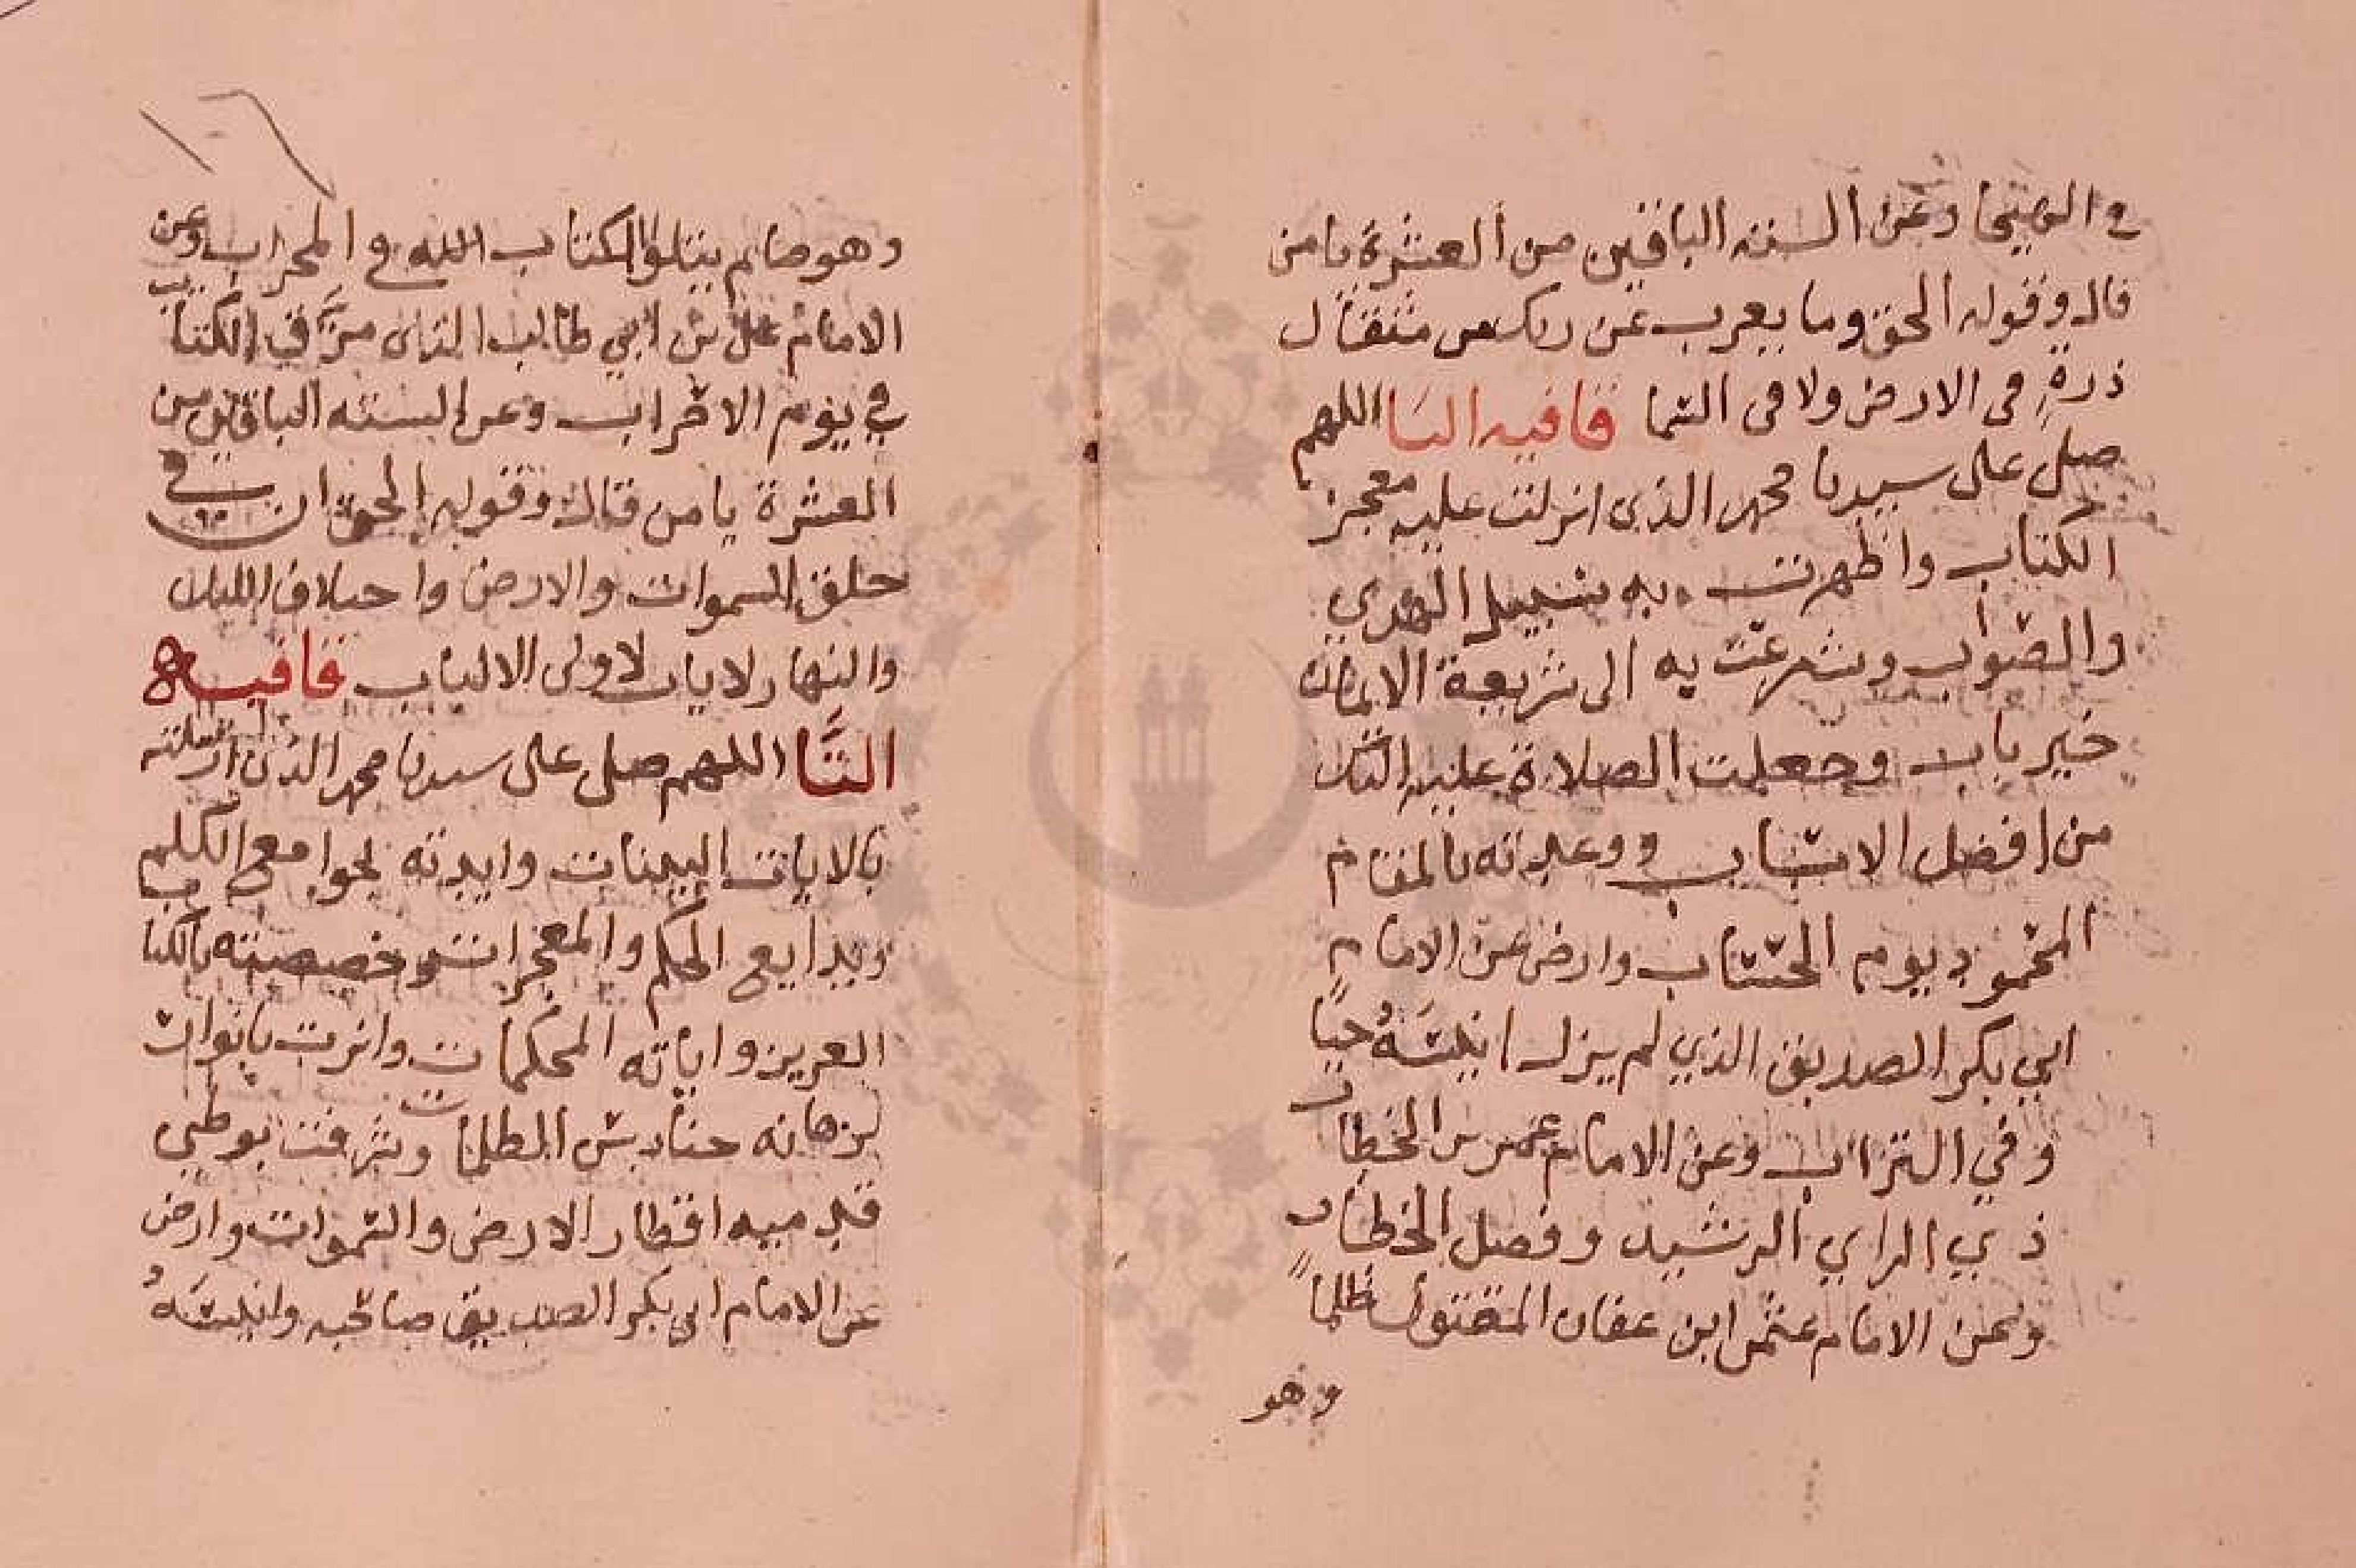 في الهيجا وعن الستة الباقين من العشرة يا من
قال وقوله الحق وما يعزب عن ربك من مثقال
ذرةٍ في الارض ولا في السما قافيه البَا اللهم
صل على سيدنا محمد الذى انزلت عليه معجز
الكتاب واظهرت به سبيل الهدي
والصواب وشرعت به الى شريعة الايمان
خير باب وجعلت الصلاة عليه اليك
من افضل الاسباب ووعدته بالمقام
المحمود يوم الحساب وارض عن الامام
ابي بكر الصديق الذي لم يزل انيسَهُ حيًا
وفي التراب وعن الامام عمر بن الخطاب
ذي الراي الرشيد وفصل الخطاب
وعن الامام عثمن ابن عفان المقتول ظلماً
وهو
وهو صايم يتلوا الكتاب الله في المحراب وعن
الامام علي بن ابي طالب مرَّقي الكتايب
في يوم الاحزاب وعن الستة الباقين من
العشرة يا من قال وقوله الحق ان في
خلق السموات والارض واحتلاف الليل
والنهار لايات لاولى الالباب قافيه
التَّا اللهم صل على سيدنا محمد الذى ارسلته
بالايات البينات وايدته بجوامع الكلم
وبدايع الحكم والمعجزات وخصصته بالكتاب
العزيز واياته المحكمات وانرت بانوار
برهانه حنادس الظلمات وشرفت بوطي
قدميه اقطار الارض والسموات وارض
عن الامام ابي بكر الصديق صاحبه وانيسَهُ